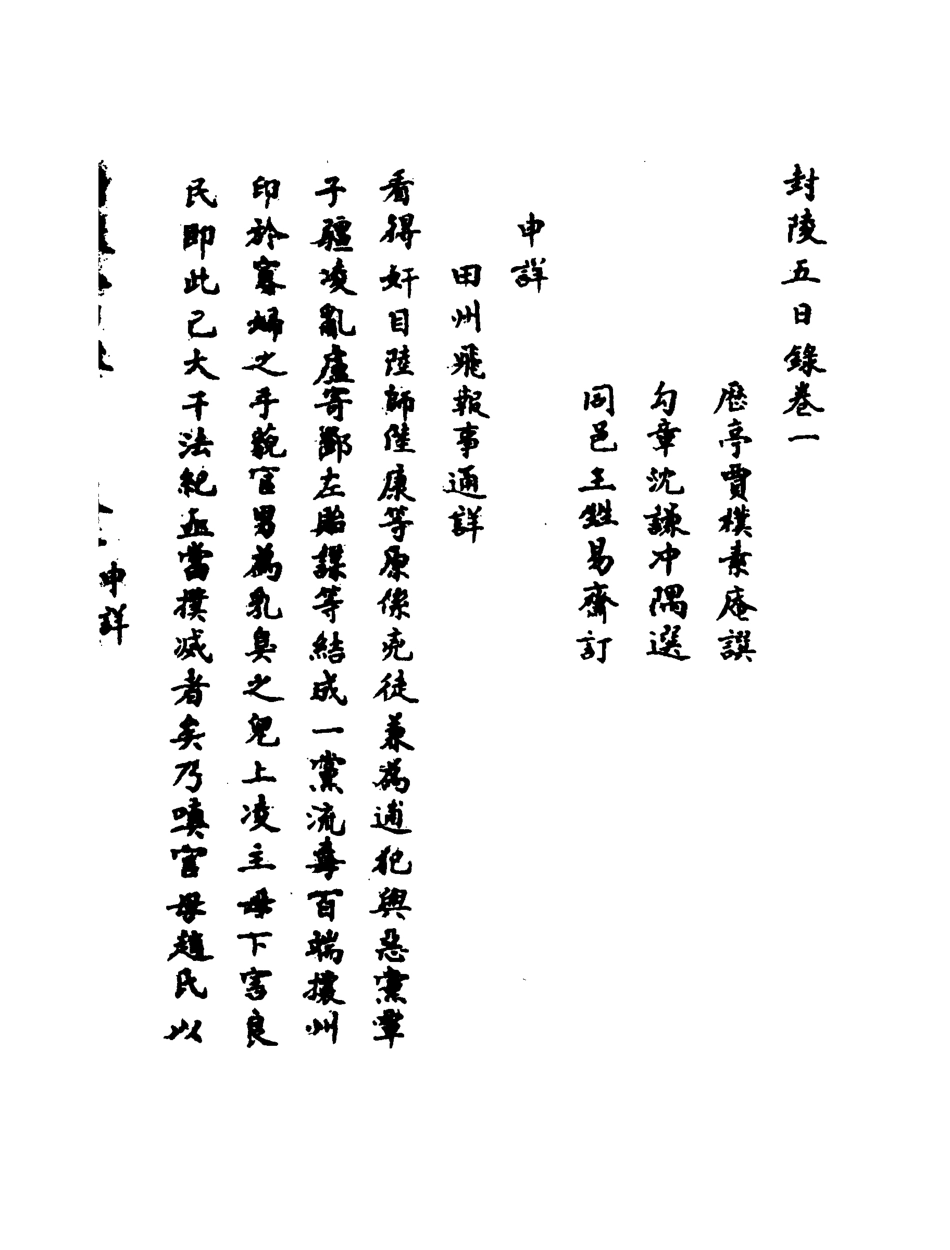 封陵五日錄卷一
歷亭賈樸素庵譔
勾章沈謙冲隅選
同邑王甡易齋訂
申詳
田州飛報事通詳
看得奸目陸師陸康等原係兇徒兼為逋犯與惡黨覃
子疆凌亂盧寄鄧左貽謀等結成一黨流毒百端攘州
印於寡婦之手藐官男為乳臭之兒上凌主母下害良
民即此已大干法紀亟當撲滅者矣乃嗔官母趙氏以
申詳